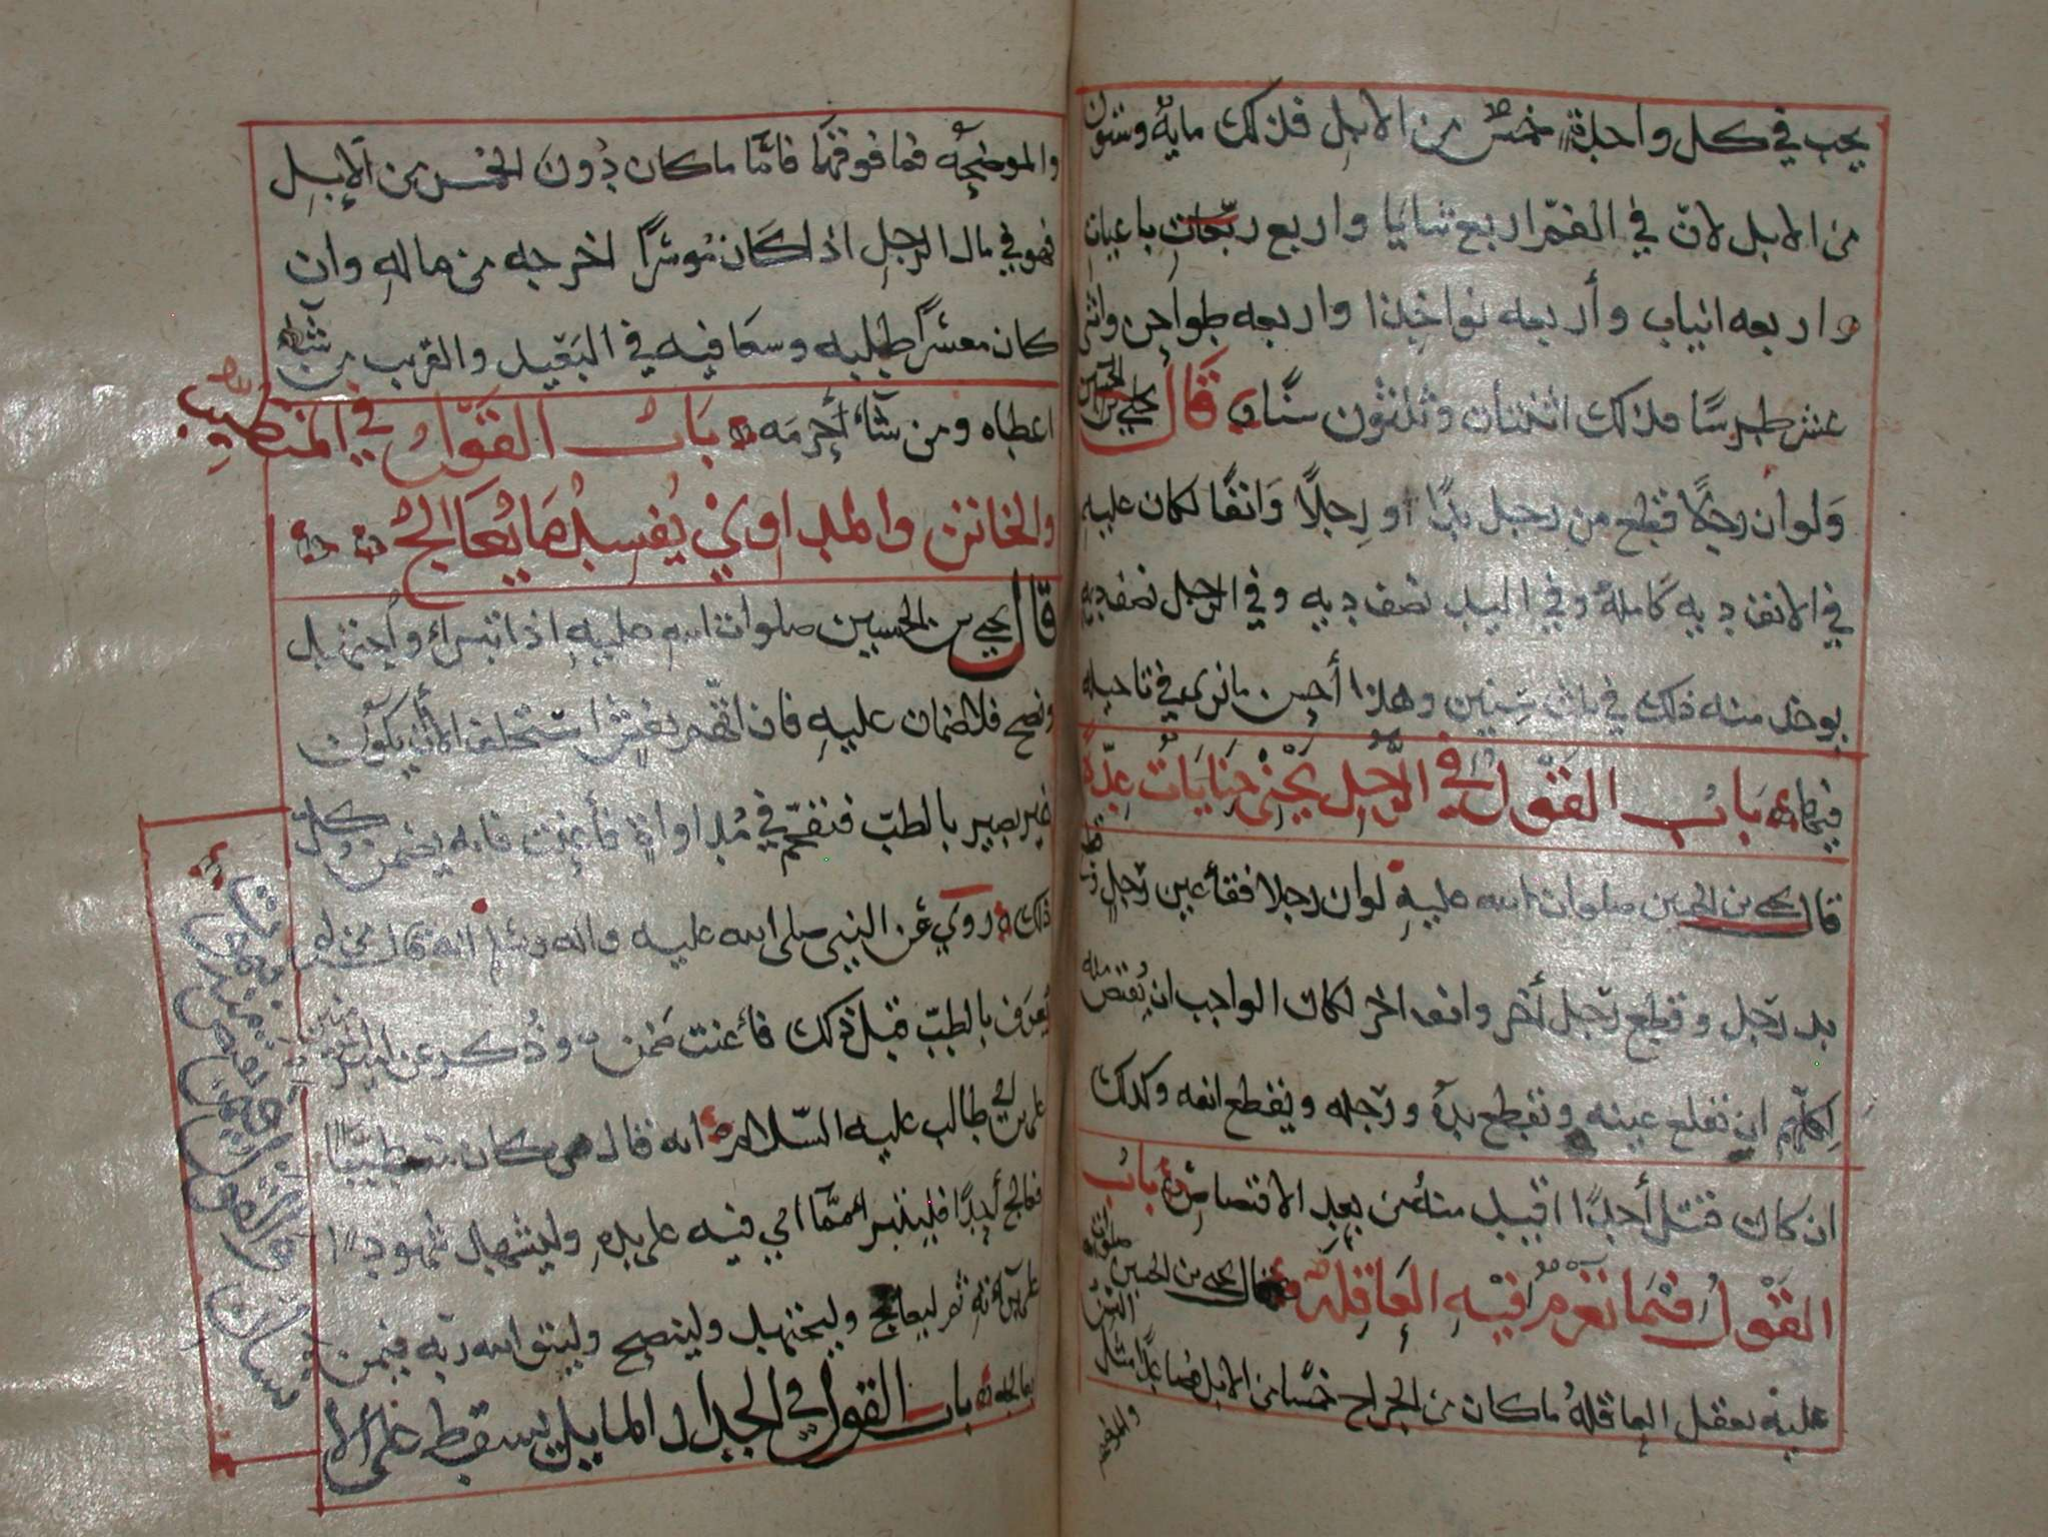 يجب في كل واحدة خمس من الابل فذلك مايه وستون
من الابل لان في الفم اربع ثنايا واربع رباعيات
واربعه انياب وأربعه نواجذا واربعه طواحن واثنى
عشر طرسا فذلك اثنتان وثلثون سنا قال يحيى بن الحسين
ولو ان رجلا قطع من رجل يدا او رجلا وانفا لكان عليه
في الانف ديه كامله وفي اليد نصف ديه وفي الرجل نصف ديه
يوخذ منه ذلك في ثلث سنين وهذا أحسن ما نرى في تاجيله
باب القول في الرجل يجني جنايات عدة
قال يحيى بن الحسين صلوات الله عليه لو ان رجلا فقأ عين رجل
يد رجل وقطع رجل أخر وانف اخر لكان الواجب ان يقتص منه
لكلهم ان تقلع عينه وتقطع يده ورجله ويقطع انفه وكذلك
ان كان قتل أحدا اقيد منه من بعد الاقتصاص باب
القول فيما تغرم فيه العاقلة قال يحيى بن الحسين صلوات الله
عليه تعقل العاقله ما كان من الجراح خمسا من الابل فصاعدا مثل السن
والموضحه
والموضحه فما فوقها فاما ما كان دون الخمس من الابل
فهو في مال الرجل اذا كان موسرا اخرجه من ماله وان
كان معسرا طلبه وسعا فيه في البعيد والقريب من شاء
اعطاه ومن شاء أحرمه باب القول في المتطبب
والخاتن والمداوي يفسد ما يعالج
قال يحيى بن الحسين صلوات الله عليه اذا تبرأ واجتهد
ونصح فلا ضمان عليه فان اتهم بغش استحلف الا أن يكون
غير بصير بالطب فتقحم في مداواة فأعنت فانه يضمن كل
ذلك روي عن النبي صلى الله عليه واله وسلم انه قال من لم
يعرف بالطب قبل ذلك فأعنت ضمن وذكر عن امير المؤمنين
علي بن ابي طالب عليه السلام انه قال من كان متطببا
فعالج أحدا فليتبرا مما اتي فيه على يده وليشهد شهودا
على برأته ثم ليعالج وليجتهد ولينصح وليتق الله ربه فيمن
يعالجه باب القول في الجدار المايل يسقط على الا
نسان والقول